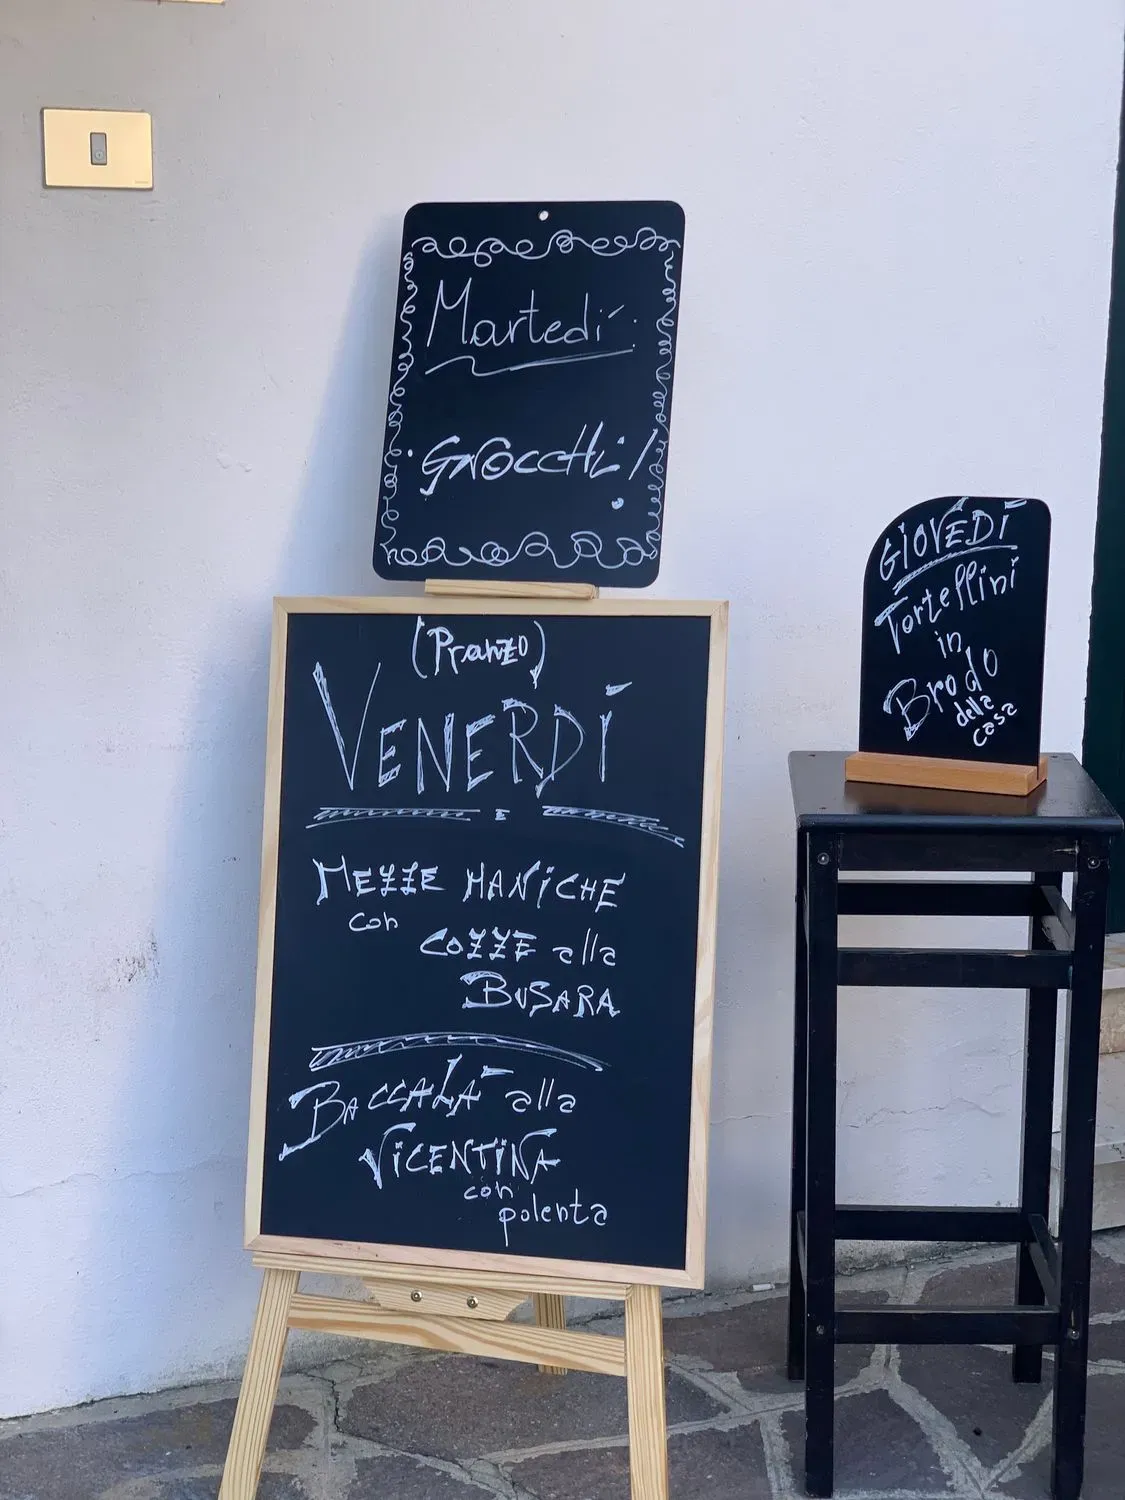 Martedí:
GNOCCHI!
(Pranzo)
VENERDÍ
E
MEZZE MANICHE
con
COZZE alla
BUSARA
BACCALÀ alla
VICENTINA
con
polenta
GIOVEDÍ
Tortellini
in
Brodo
della
casa